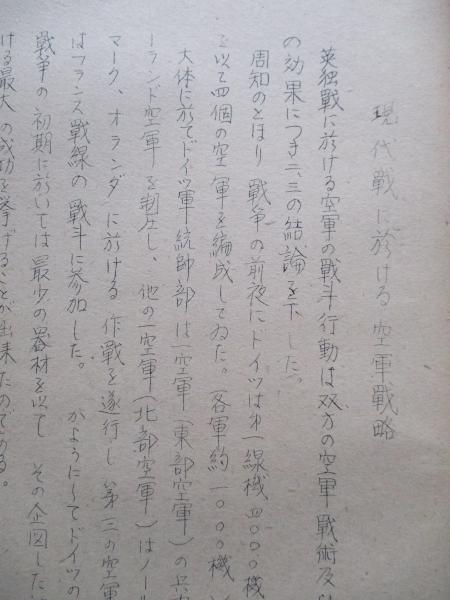 現代戦に於ける空軍戦略
英独戦に於ける空軍の戦斗行動は双方の空軍戦術及
の効果につき二、三の結論を下した。
周知のとほり戦争の前夜にドイツは才一線機四〇〇〇機
を以て四個の空軍を編成してゐた。(各軍約一〇〇〇機)
大体に於てドイツ軍統帥部は一空軍(東部空軍)の兵
ーランド空軍を制圧し、他の一空軍(北部空軍)はノール
マーク、オランダに於ける作戦を遂行し第三の空軍
はフランス戦線の戦斗に参加した。かようにしてドイツの
戦争の初期に於いては最少の器材を以てその企図した
ける最大の成功を挙げることが出来たのである。